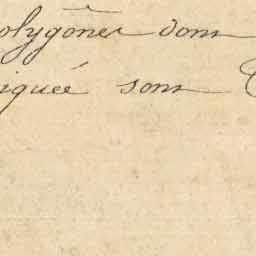 olygônes dont
iquée sont